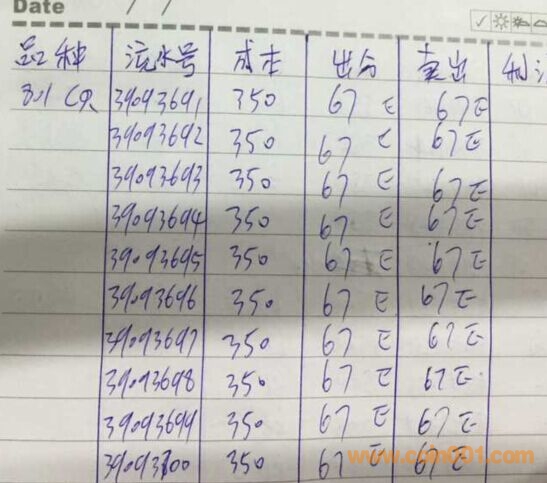 Date / /
品种 流水号 成本 出分 卖出 利
39093691 350 67 E 67E
39093692 350 67 E 67E
39093693 350 67 E 67E
39093694 350 67 E 67E
39093695 350 67 E 67E
39093696 350 67 E 67E
39093697 350 67 E 67E
39093698 350 67 E 67E
39093699 350 67 E 67E
39093700 350 67 E 67E
www.coin001.com